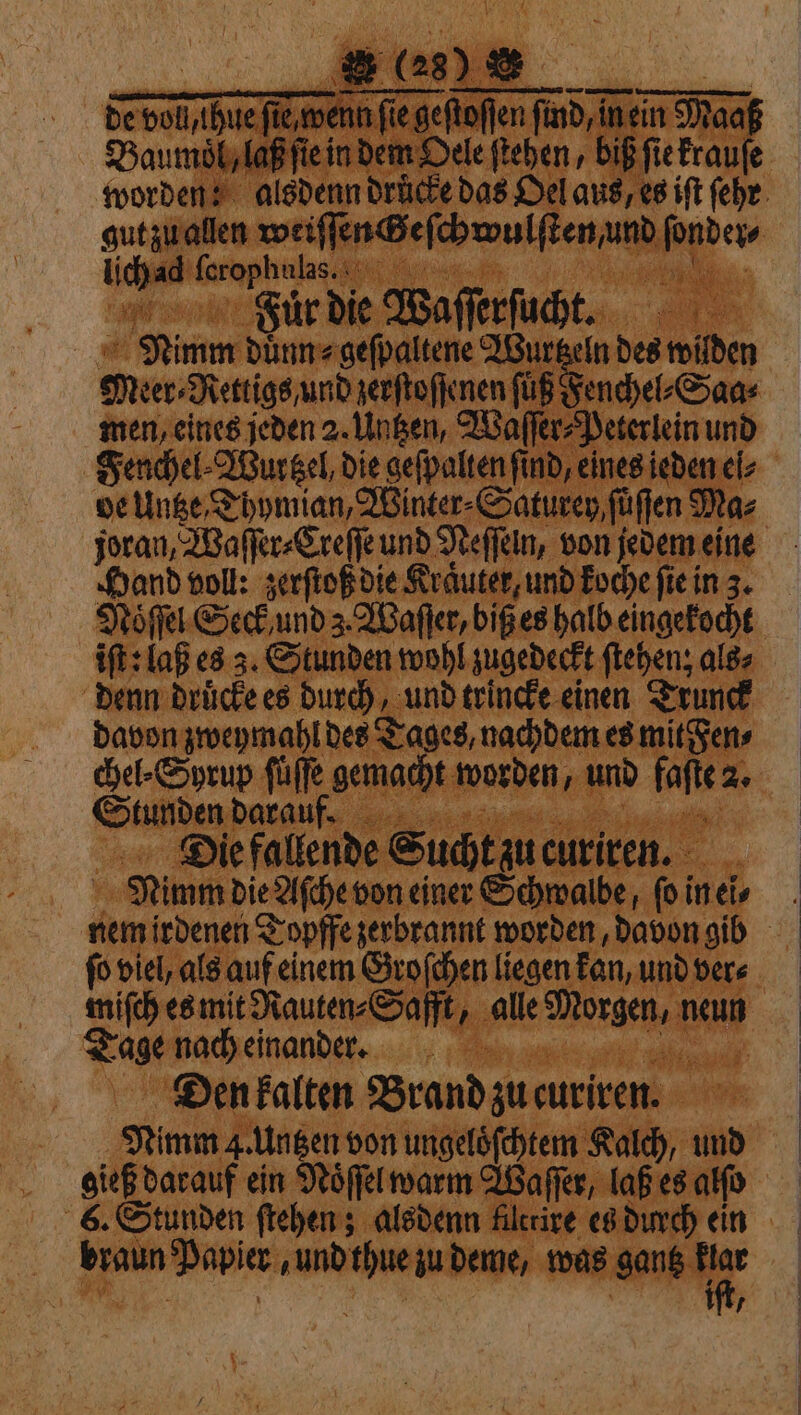 (28)
de voll, thue ſie, wenn ſie geſtoſſen ſind, in ein Maaß
Baumoͤl, laß ſie in dem Oele ſtehen, biß ſie krauſe
worden: alsdenn druͤcke das Oel aus, es iſt ſehr
gut zu allen weiſſen Geſchwulſten, und ſonder⸗
lich ad ſcrophulas.
Fuͤr die Waſſerſucht.
Nimm duͤnn⸗geſpaltene Wurtzeln des wilden
Meer⸗Rettigs, und zerſtoſſenen ſuͤß Fenchel⸗Saa⸗
men, eines jeden 2. Untzen, Waſſer⸗Peterlein und
Fenchel⸗Wurtzel, die geſpalten ſind, eines ieden ei⸗
ne Untze, Thymian, Winter⸗Saturey, ſuͤſſen Ma⸗
joran, Waſſer⸗Creſſe und Neſſeln, von jedem eine
Hand voll: zerſtoß die Kraͤuter, und koche ſie in 3.
Noͤſſel Seck, und 3. Waſſer, biß es halb eingekocht
iſt: laß es 3. Stunden wohl zugedeckt ſtehen; als⸗
denn druͤcke es durch, und trincke einen Trunck
davon zweymahl des Tages, nachdem es mit Fen⸗
chel⸗Syrup ſuͤſſe gemacht worden, und faſte 2.
Stunden darauf.
Die fallende Sucht zu curiren.
Nimm die Aſche von einer Schwalbe, ſo in ei⸗
nem irdenen Topffe zerbrannt worden, davon gib
ſo viel, als auf einem Groſchen liegen kan, und ver⸗
miſch es mit Rauten⸗Safft, alle Morgen, neun
Tage nach einander.
Den kalten Brand zu curiren.
Nimm 4. Untzen von ungeloͤſchtem Kalch, und
gieß darauf ein Noͤſſel warm Waſſer, laß es alſo
6. Stunden ſtehen; alsdenn filtrire es durch ein
braun Papier, und thue zu deme, was gantz klar
iſt,